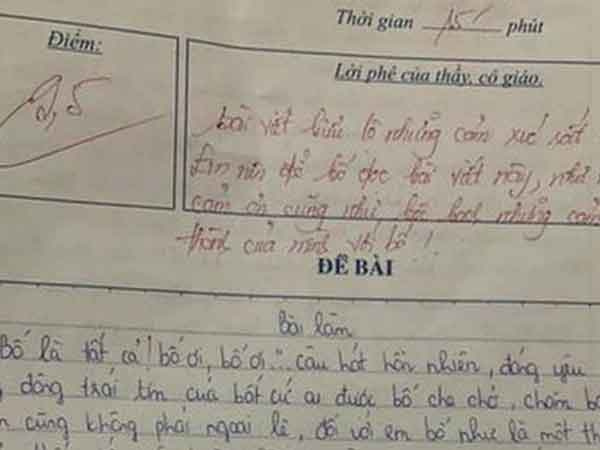 Thời gian 15' phút
Điểm:
9,5
Lời phê của thầy, cô giáo.
bài viết biểu lộ những cảm xúc rất
Em nên để bố đọc bài viết này, như
cảm ơn cũng như bộc bạch những
thành của mình với bố!
ĐỀ BÀI
Bài làm
Bố là tất cả! bố ơi, bố ơi"... câu hát hồn nhiên, đáng yêu
động trái tim của bất cứ ai được bố che chở, chăm
cũng không phải ngoại lệ, đối với em bố như là một